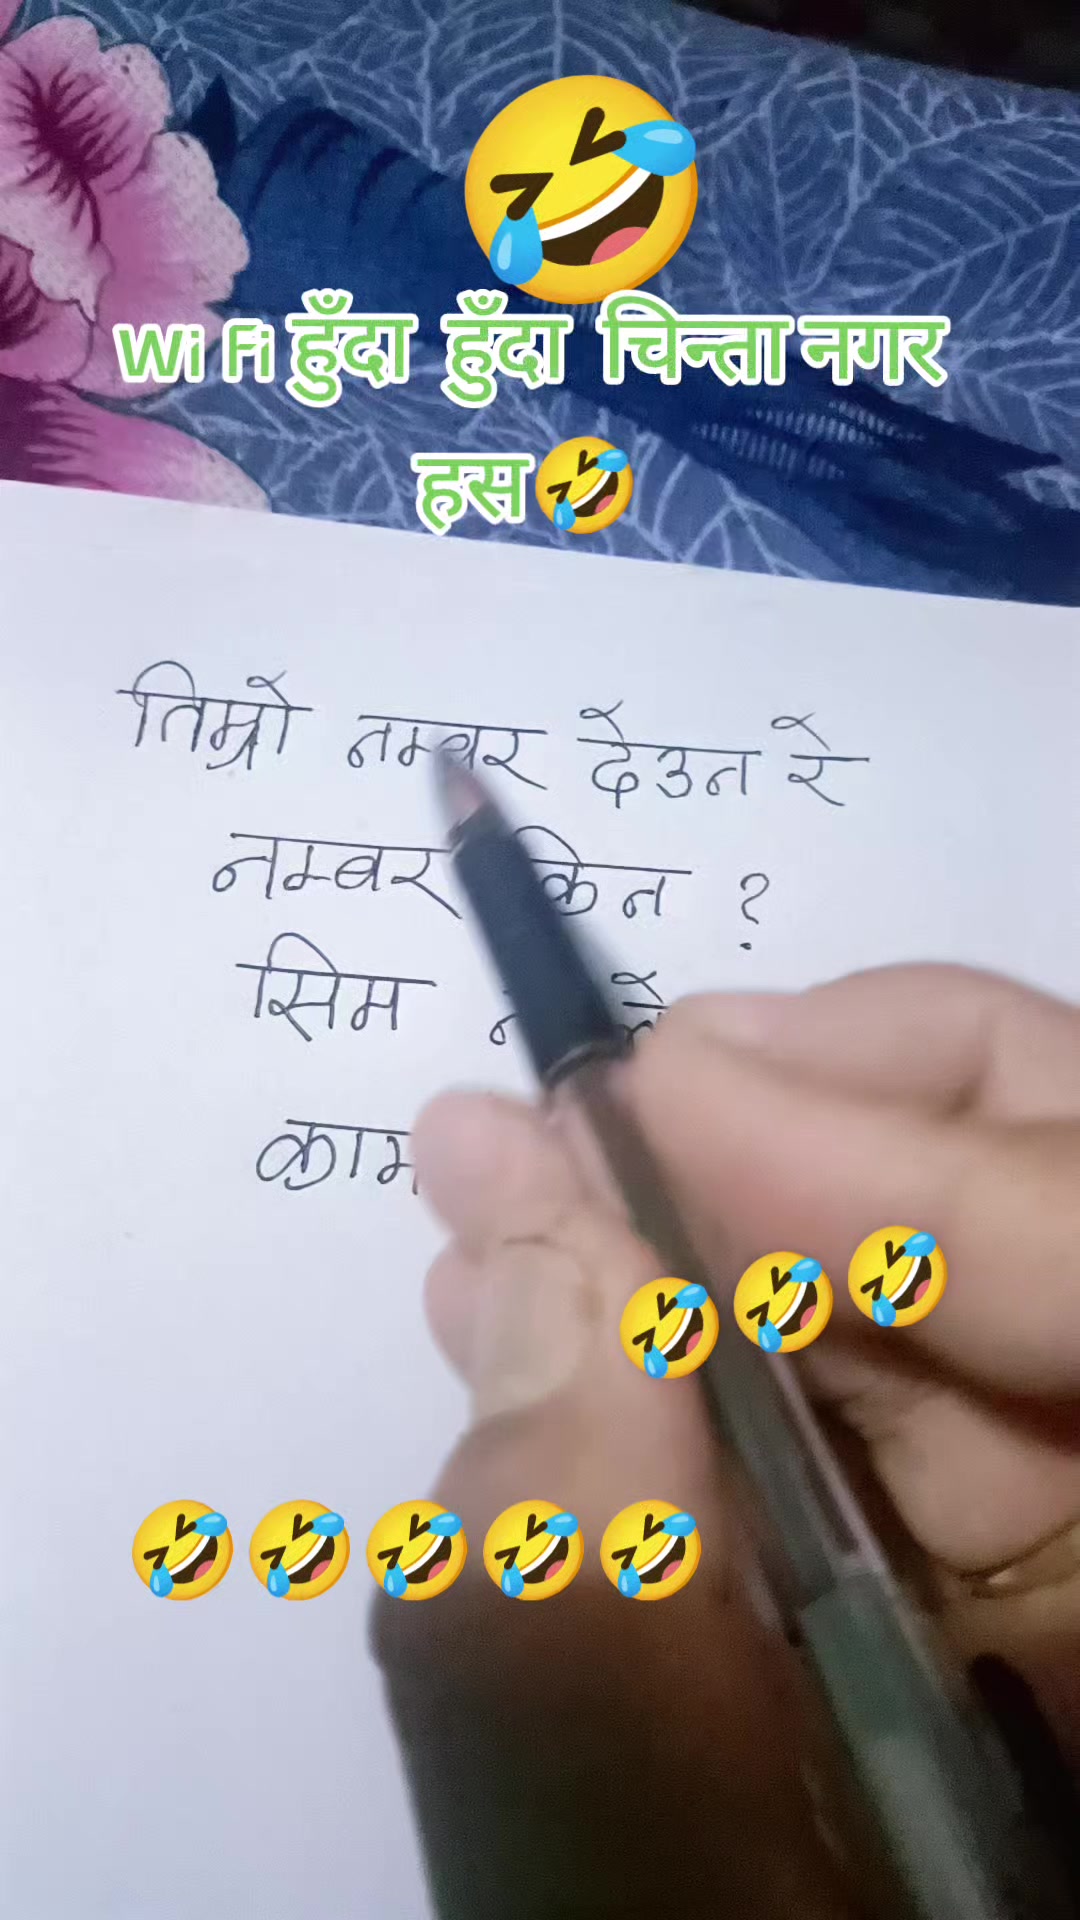 🤣
Wi Fi हुँदा हुँदा चिन्ता नगर
हस🤣
तिम्रो नम्बर देउन रे
नम्बर किन ?
सिम
काम
🤣🤣🤣
🤣🤣🤣🤣🤣